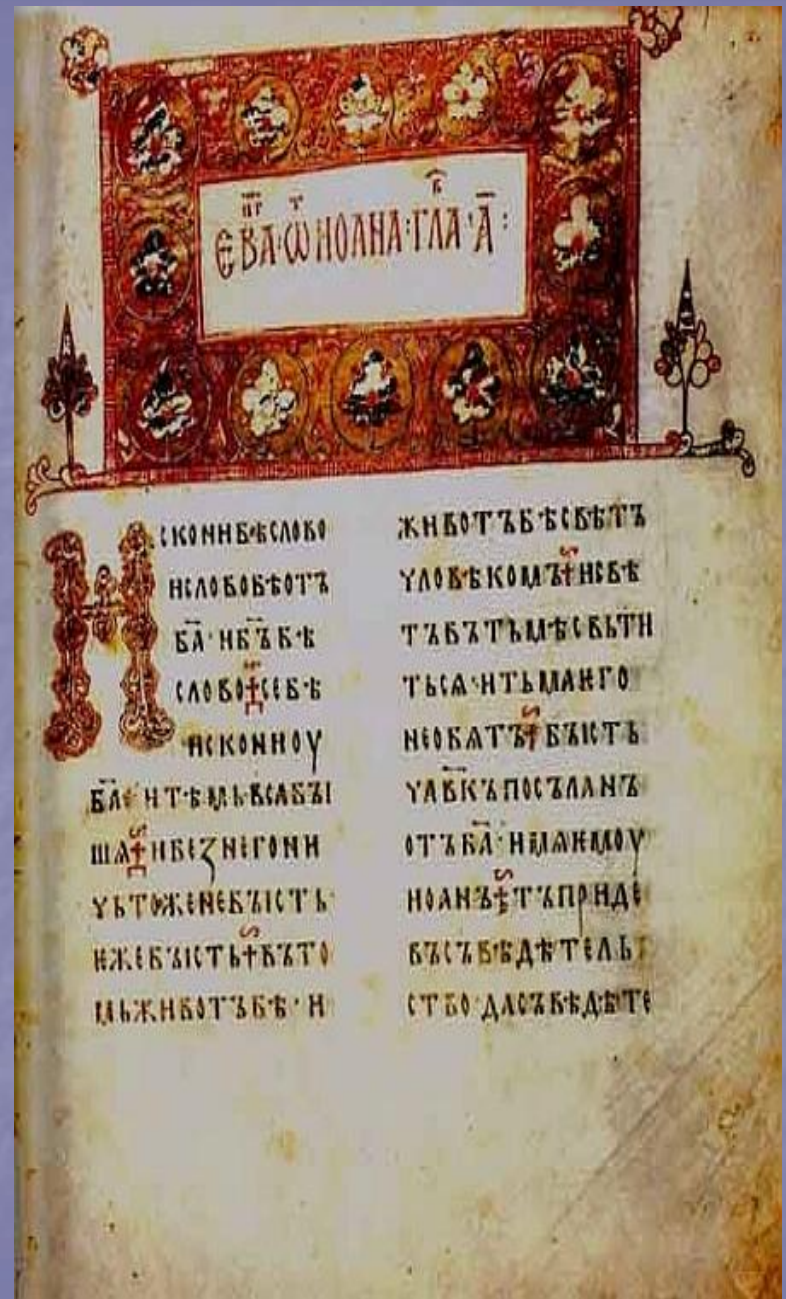 ЄВА·Ѿ ИОАНА·ГЛА·А҃:
ИСКОНИБѢСЛОВО
ИСЛОВОБѢОТЪ
Б҃А·ИБ҃ЪБѢ
СЛОВО СЕБѢ
ИСКОНИОУ
Б҃А ИТѢМЬВСАБЫ
ШѦ ИБЕꙀНЕГОНИ
ЧЬТОЖЕНЕБЪІСТЬ
ЕЖЕБЪІСТЬ ВЪТО
МЬЖИВОТЪБѢ·И
ЖИВОТЪБѢСВѢТЪ
ЧЛОВѢКОМЪ ИСВѢ
ТЪВЪТЬМѢСВЬТИ
ТЬСѦ·ИТЬМАѤГО
НЕОБѦТЪ БЪІСТЬ
ЧЛ҃ВКЪПОСЪЛАНЪ
ОТЪБ҃А·ИМѦѤМОУ
ИОАНЪ ТЪПРИДЕ
ВЪСЪВѢДѢТЕЛЬ
СТВО·ДАСЪВѢДѢТЕ